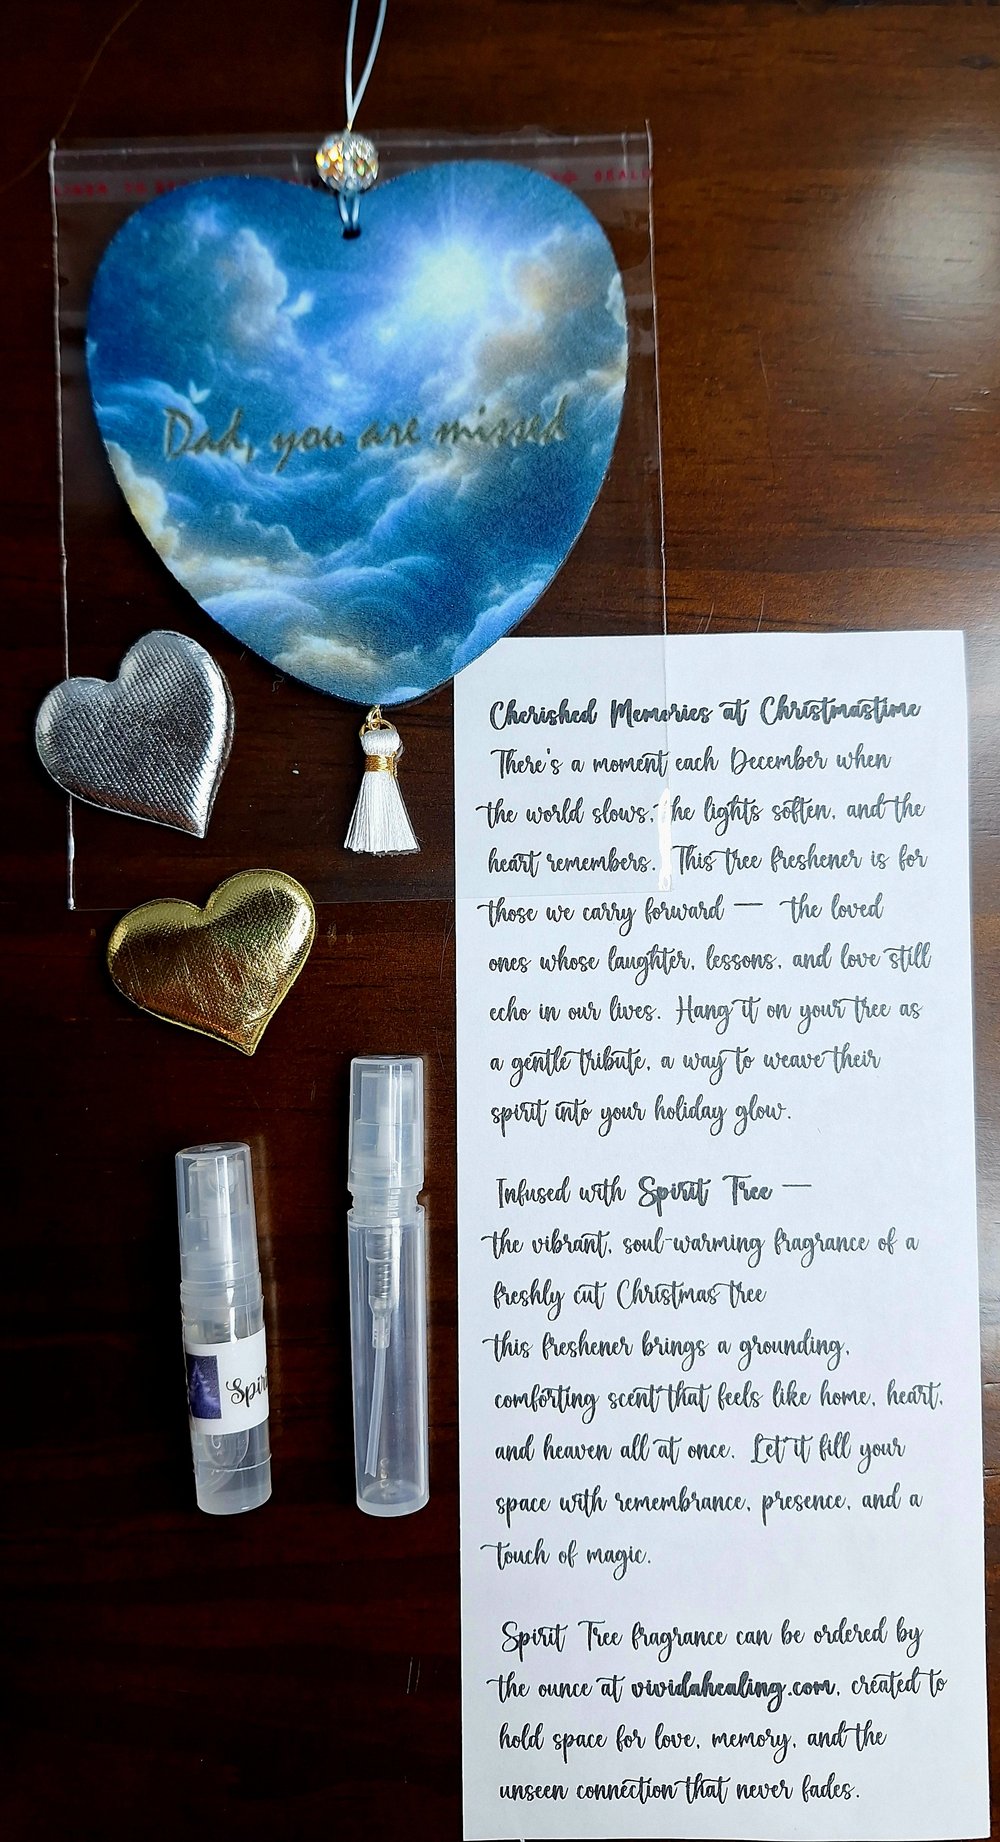 Dad, you are missed
Cherished Memories at Christmastime
There's a moment each December when
the world slows, the lights soften, and the
heart remembers. This tree freshener is for
those we carry forward — the loved
ones whose laughter, lessons, and love still
echo in our lives. Hang it on your tree as
a gentle tribute, a way to weave their
spirit into your holiday glow.
Infused with Spirit Tree —
the vibrant, soul-warming fragrance of a
freshly cut Christmas tree
this freshener brings a grounding,
comforting scent that feels like home, heart,
and heaven all at once. Let it fill your
space with remembrance, presence, and a
touch of magic.
Spirit Tree fragrance can be ordered by
the ounce at vividahealing.com, created to
hold space for love, memory, and the
unseen connection that never fades.
Spirit